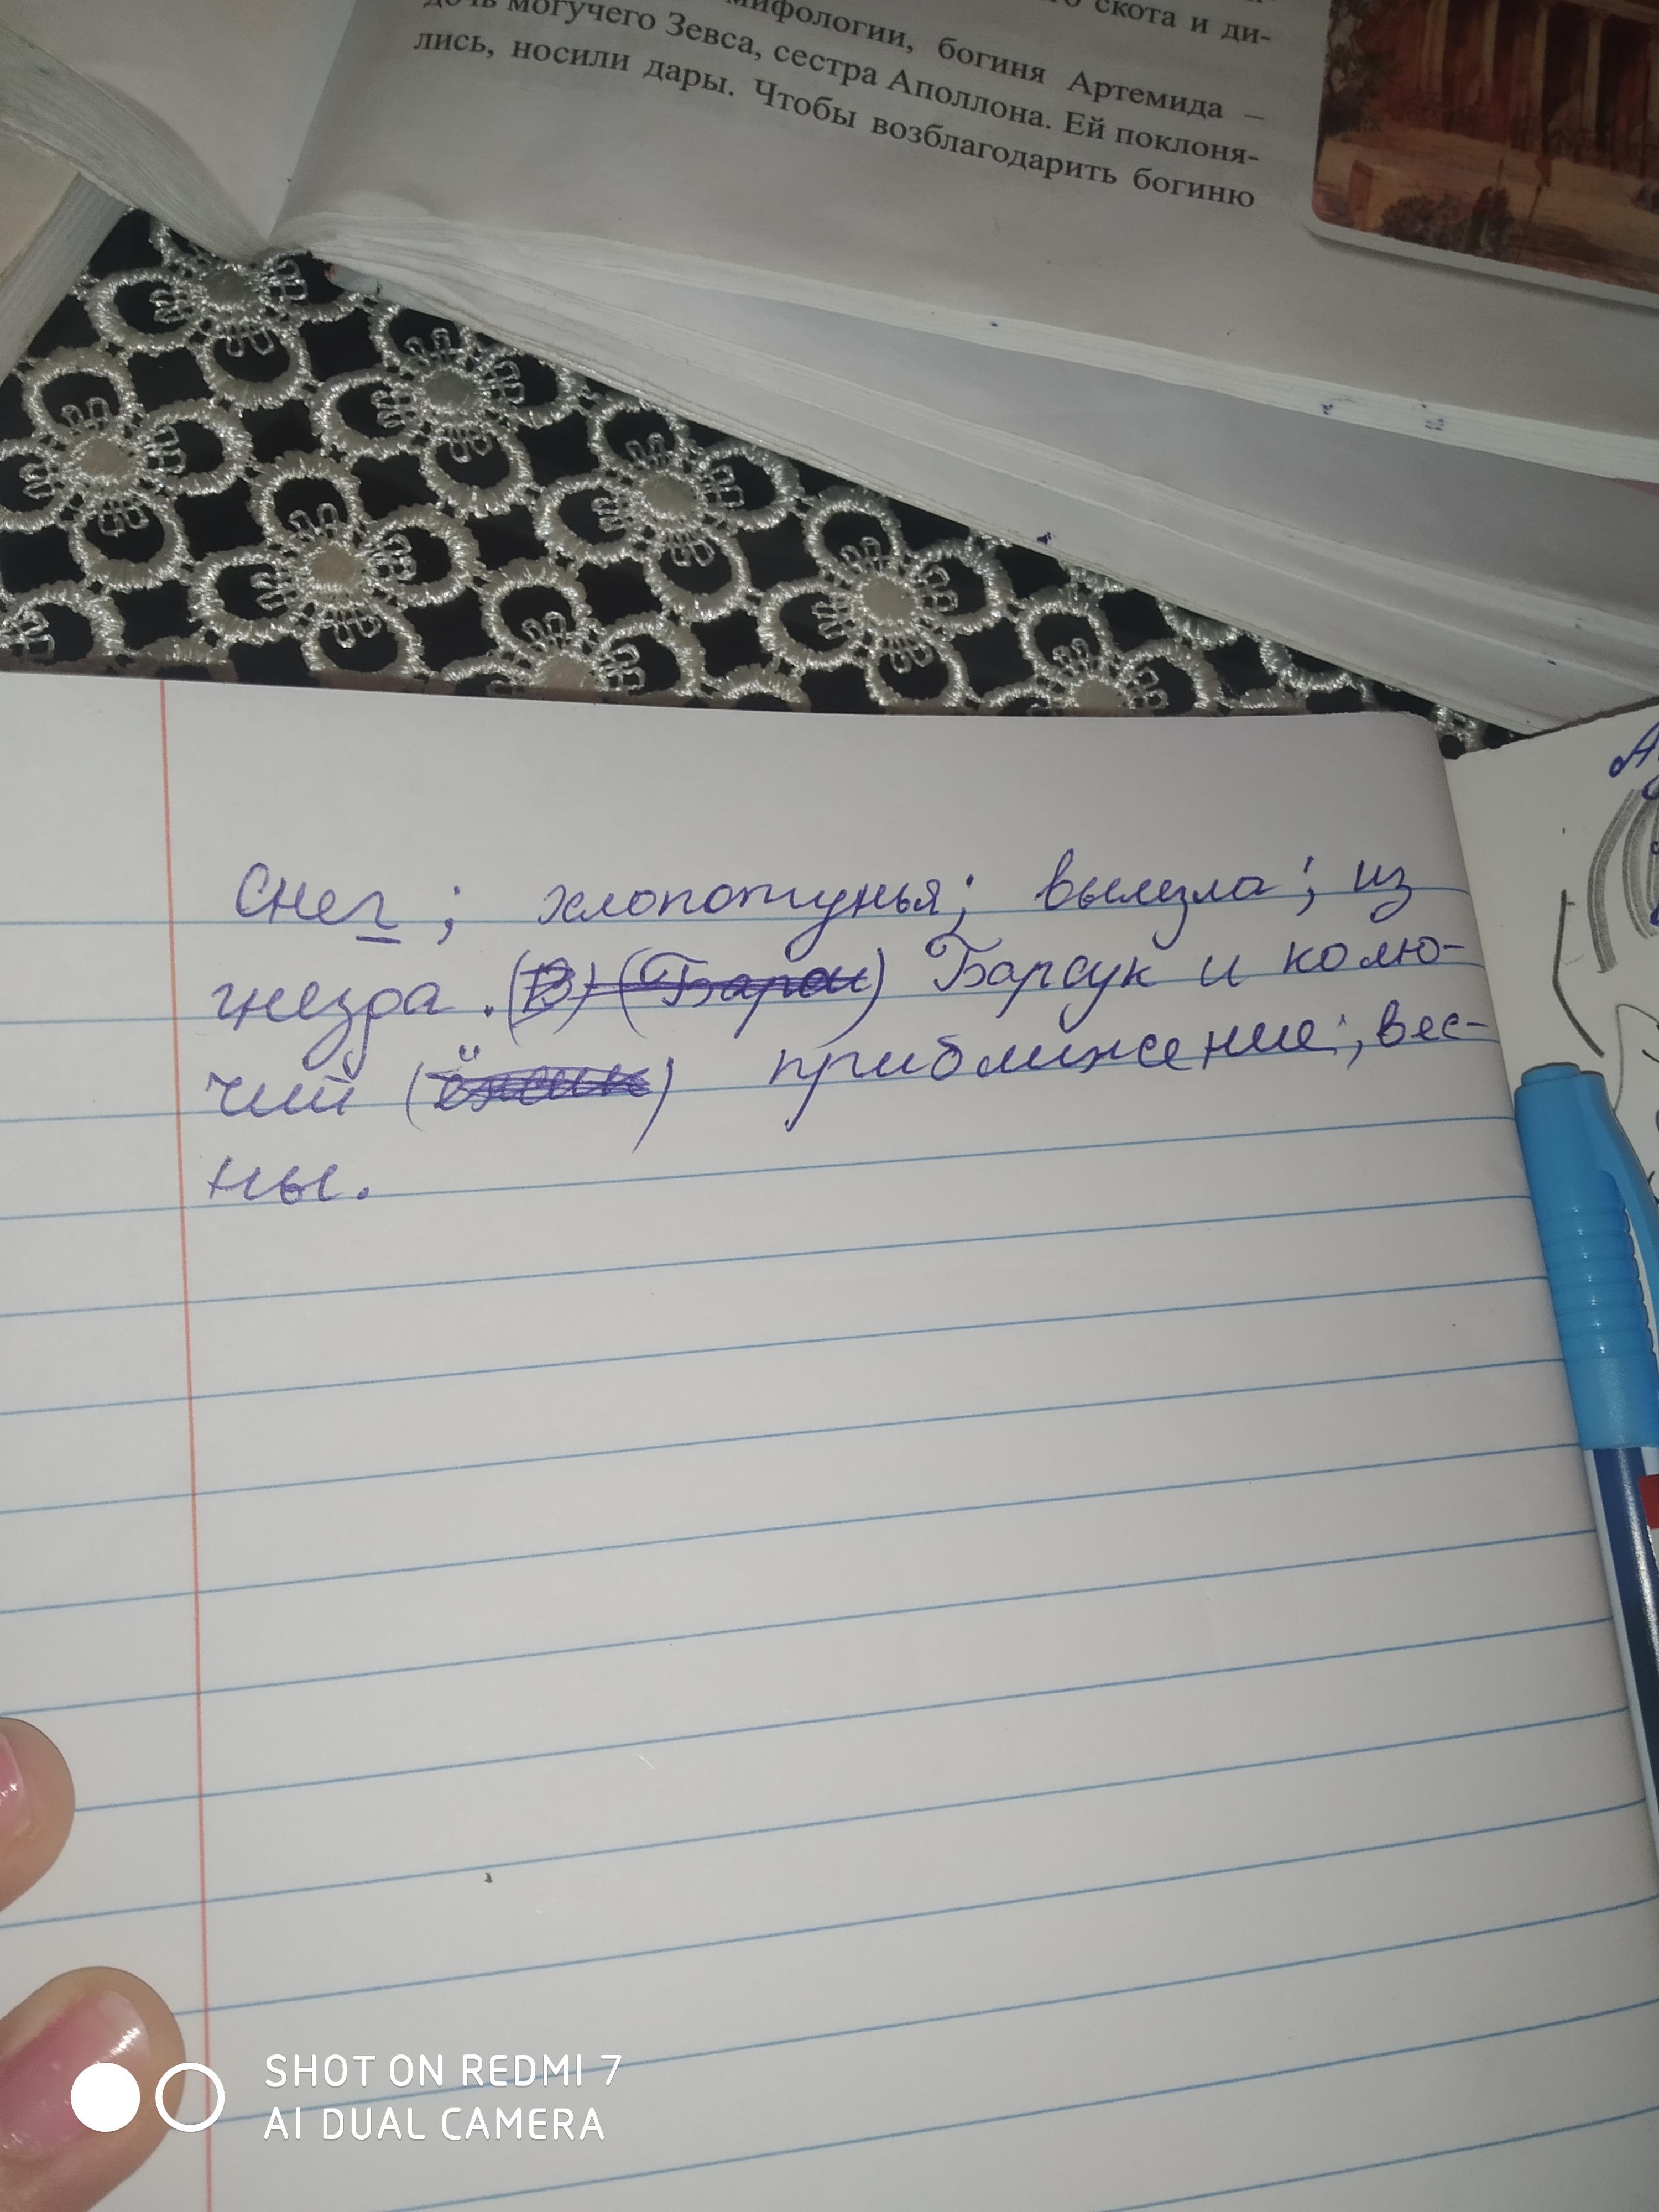 скота и ди-
мифологии, богиня Артемида –
дочь могучего Зевса, сестра Аполлона. Ей поклоня-
лись, носили дары. Чтобы возблагодарить богиню
Снег ; хлопотунья; вылезла ; из
гнезда . (В) (Барси) Барсук и колю-
чий приближение; вес-
ны.
SHOT ON REDMI 7
AI DUAL CAMERA